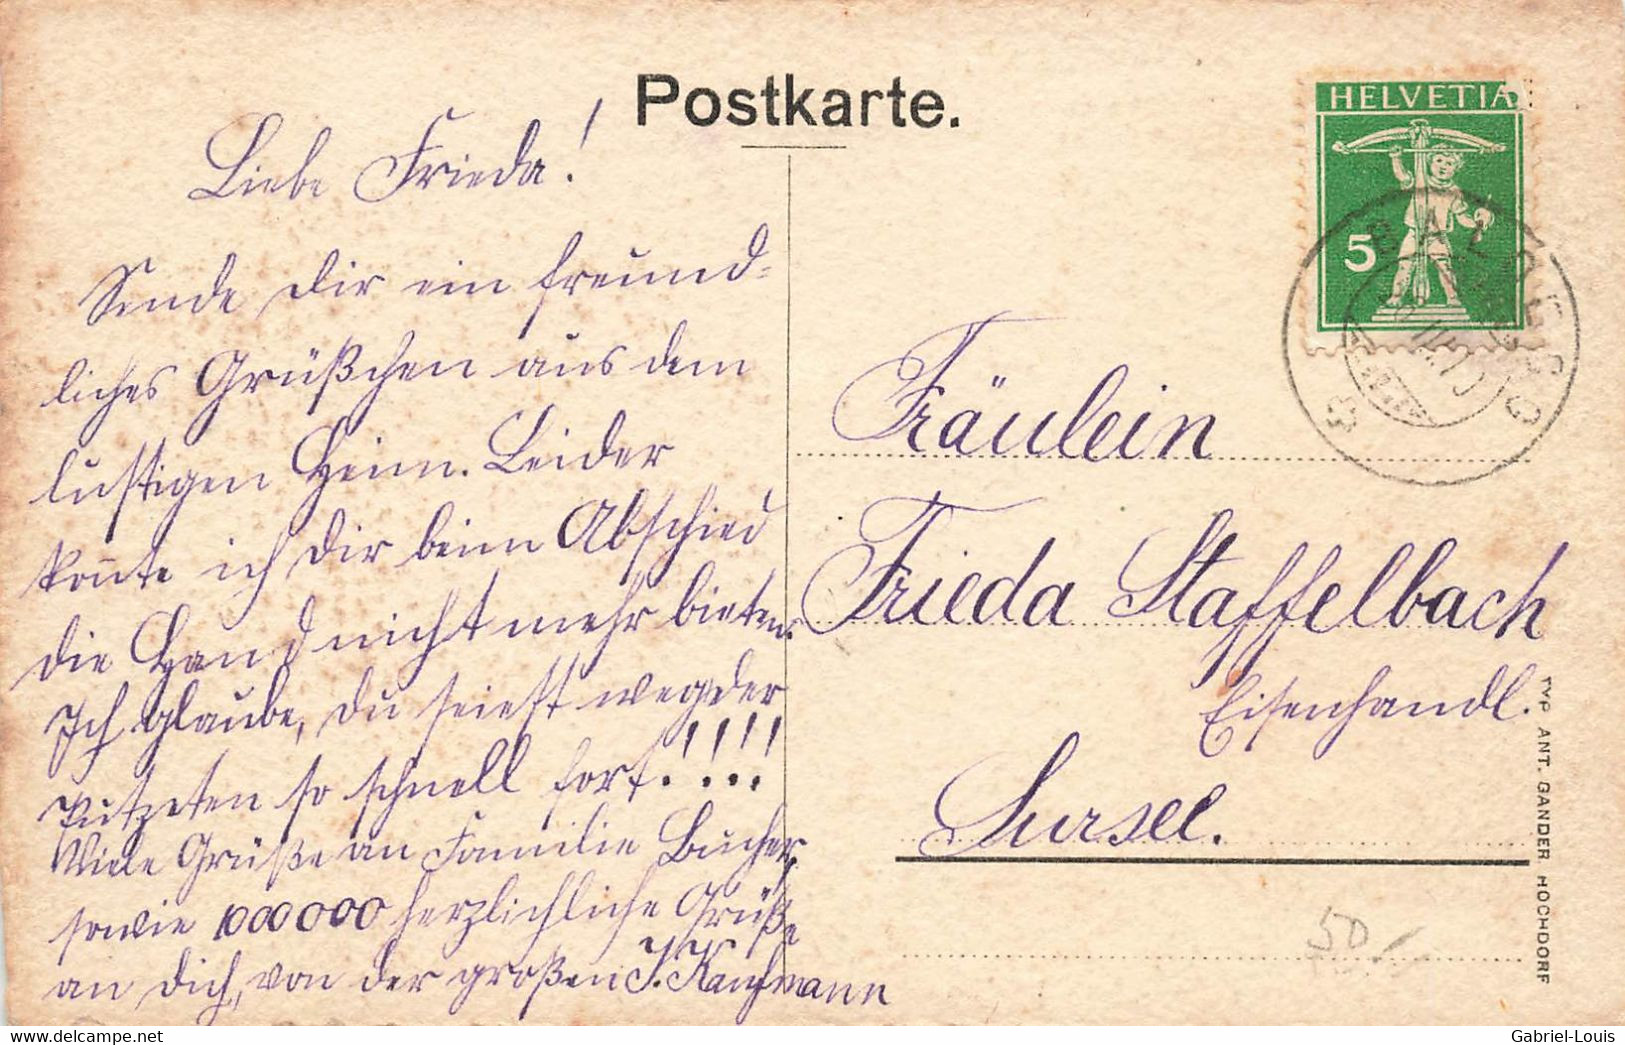 Postkarte.
Liebe Frieda!
Sende dir ein freund-
liches Grüßchen aus dem
lustigen Heim. Leider
kon̄te ich dir beim Abschied
die Hand nicht mehr bieten.
Ich glaube, du seiest weg der
so schnell fort!!!!
Viele Grüße an Familie Bucher,
sowie 1000000 herzlichliche Grüße
an Dich, von der großen J. Kaufmann
HELVETIA
5
BALDEGG
Fräulein
Frieda Staffelbach
Eisenhandl.
Sursee.
TYP. ANT. GANDER HOCHDORF
50.-
delcampe.net
Gabriel-Louis